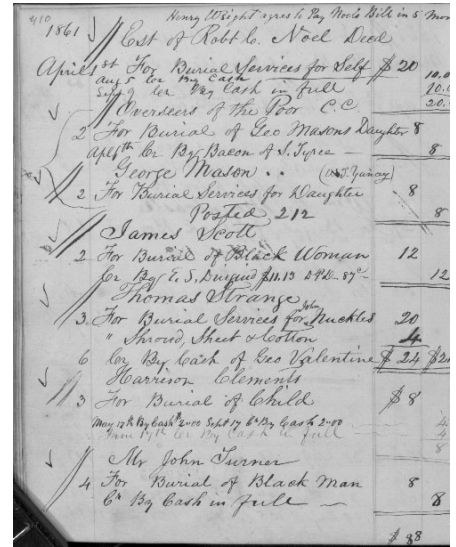 410
Henry Wright agres to Pay Noels Bill in 5 Mon
1861 Est of Robt C. Noel Decd
April 1st For Burial Services for Self $ 20
Aug 5 Cr By Cash 10.0
Sept 9 Cr By Cash in full 10.0
20.
Overseers of the Poor C.C.
2 For Burial of Geo Masons Daughter 8
Apl 6th Cr By Bacon of S. Tyree 8
George Mason
2 For Burial Services for Daughter 8
Posted 212 8
James Scott
2 For Burial of Black Woman 12
Cr By E, S, Durguid $11.13 87c 12
Thomas Strange
3 For Burial Services for John Nuckles 20
" Shroud, Sheet & Cotton 4
6 Cr By Cash of Geo Valentine $ 24 $2
Harrison Clements
3 For Burial of Child $ 8
May 17th By Cash 2=00 Sept 17 Cr By Cash 2=00 4
June 17th Cr By Cash in full 4
8
Mr John Turner
4 For Burial of Black Man 8
Cr By Cash in full 8
$ 88